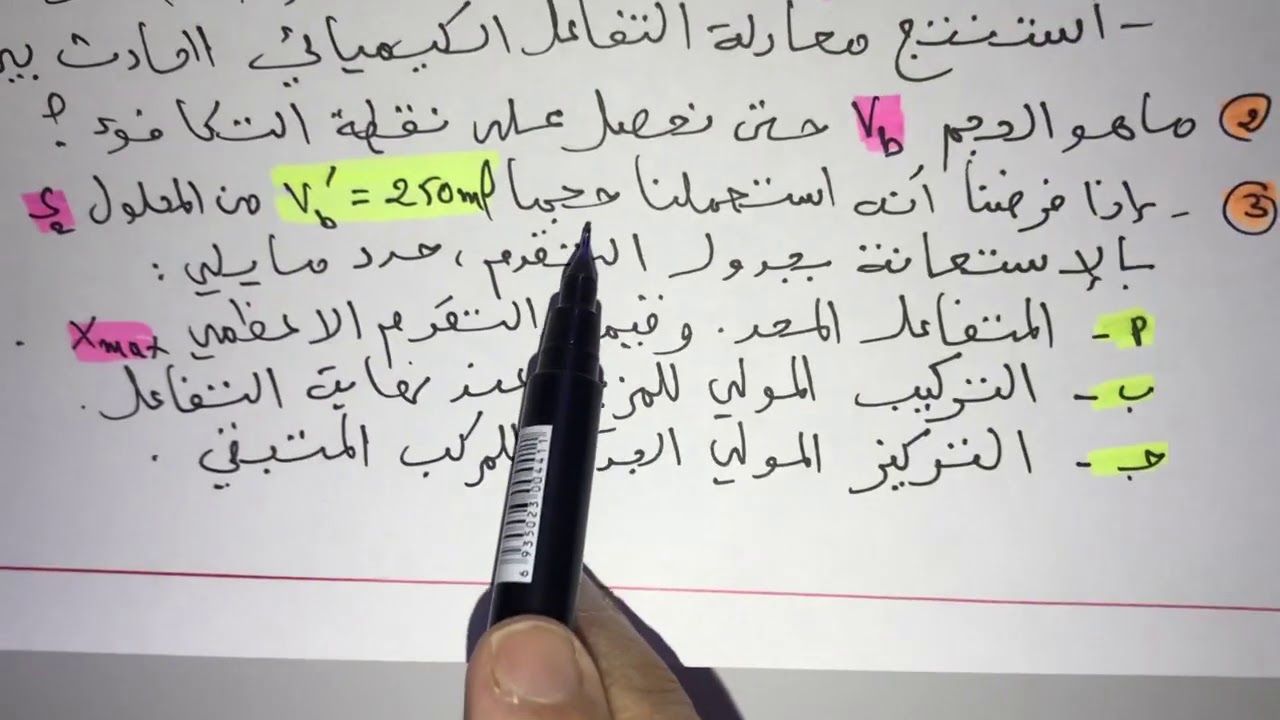 - استنتج معادلة التفاعل الكيميائي الحادث بين
2 ما هو الحجم Vb حتى نحصل على نقطة التكافؤ ؟
3 - إذا فرضنا أنه استعملنا حجما Vb' = 250ml من المحلول S2
بالإستعانة بجدول التقدم، حدد ما يلي :
أ - المتفاعل المحد. وقيمة التقدم الاعظمي Xmax .
ب - التركيب المولي للمزيج عند نهاية التفاعل.
ج - التركيز المولي الجديد للمركب المتبقي .
6 935023 004411